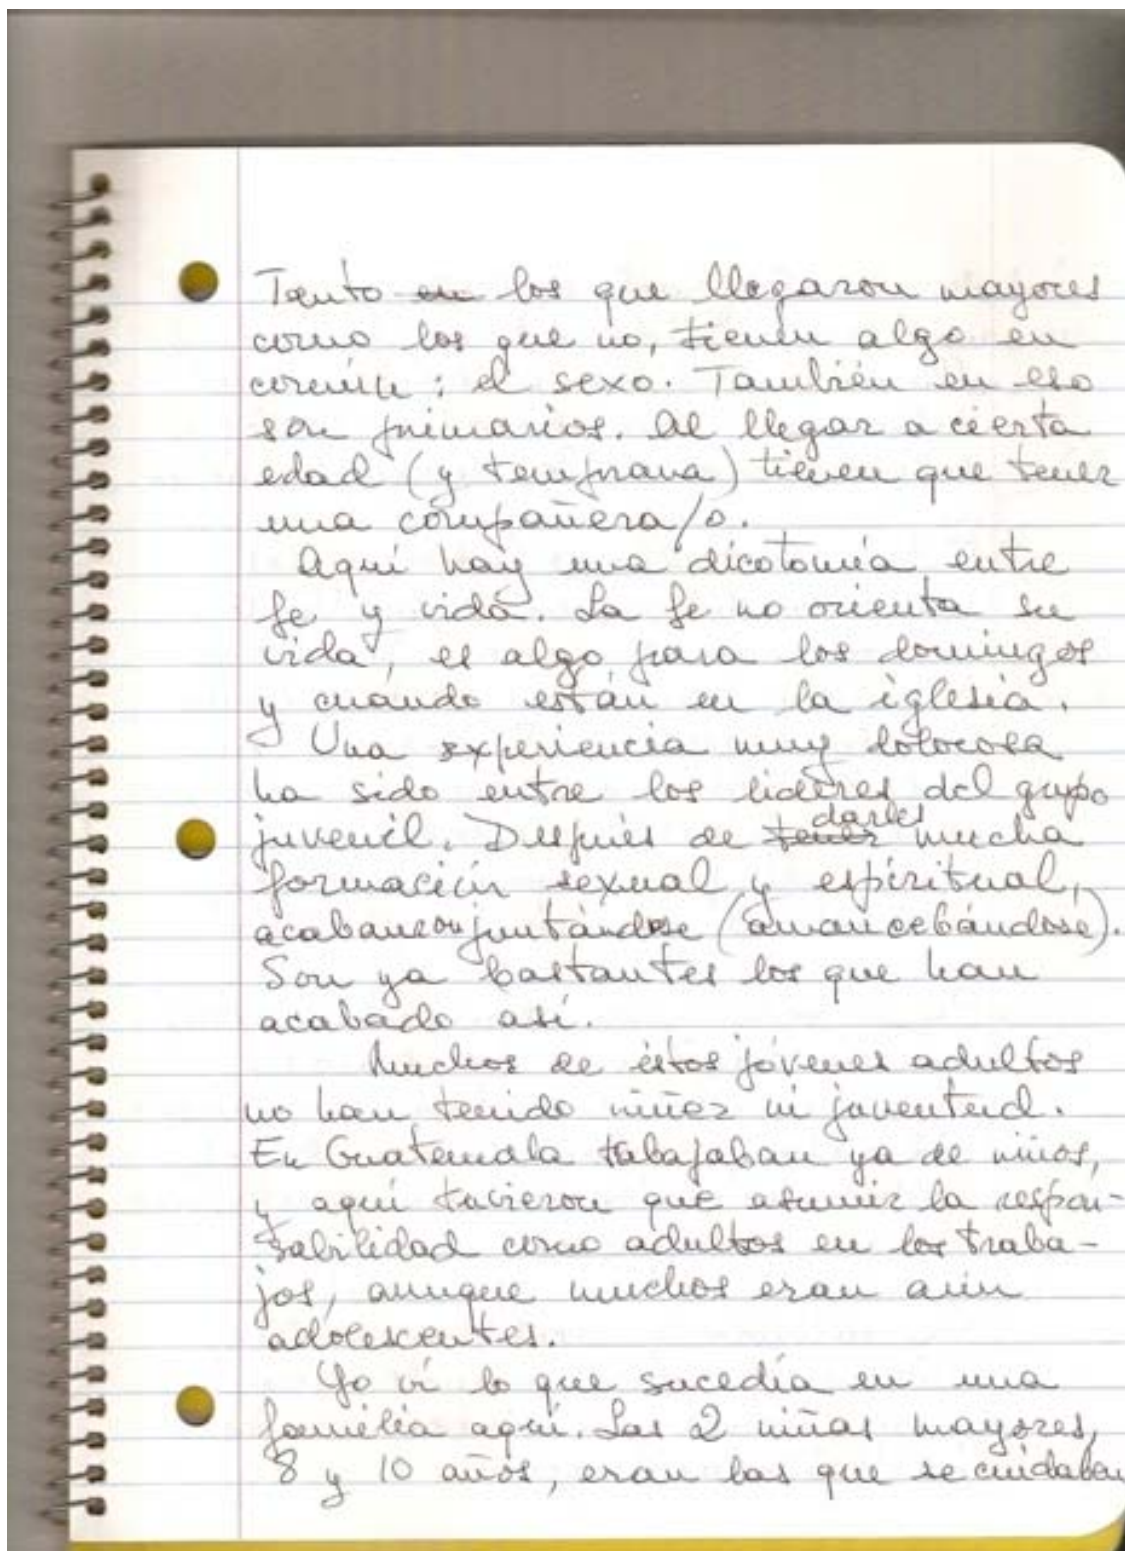 Tanto en los que llegaron mayores
como los que no, tienen algo en
común: el sexo. También en eso
son primarios. Al llegar a cierta
edad (y temprana) tienen que tener
una compañera/o.
Aquí hay una dicotomía entre
fe y vida. La fe no orienta su
vida, es algo para los domingos
y cuándo están en la iglesia.
Una experiencia muy dolorosa
ha sido entre los lideres del grupo
juvenil. Después de tener darles mucha
formación sexual y espiritual,
acabaron juntándose (amancebándose).
Son ya bastantes los que han
acabado así.
Muchos de éstos jóvenes adultos
no han tenido niñez ni juventud.
En Guatemala tabajaban ya de niños,
y aquí tuvieron que asumir la respon-
sabilidad como adultos en los traba-
jos, aunque muchos eran aún
adolescentes.
Yo ví lo que sucedía en una
família aquí. Las 2 niñas mayores,
8 y 10 años, eran las que se cuidaban